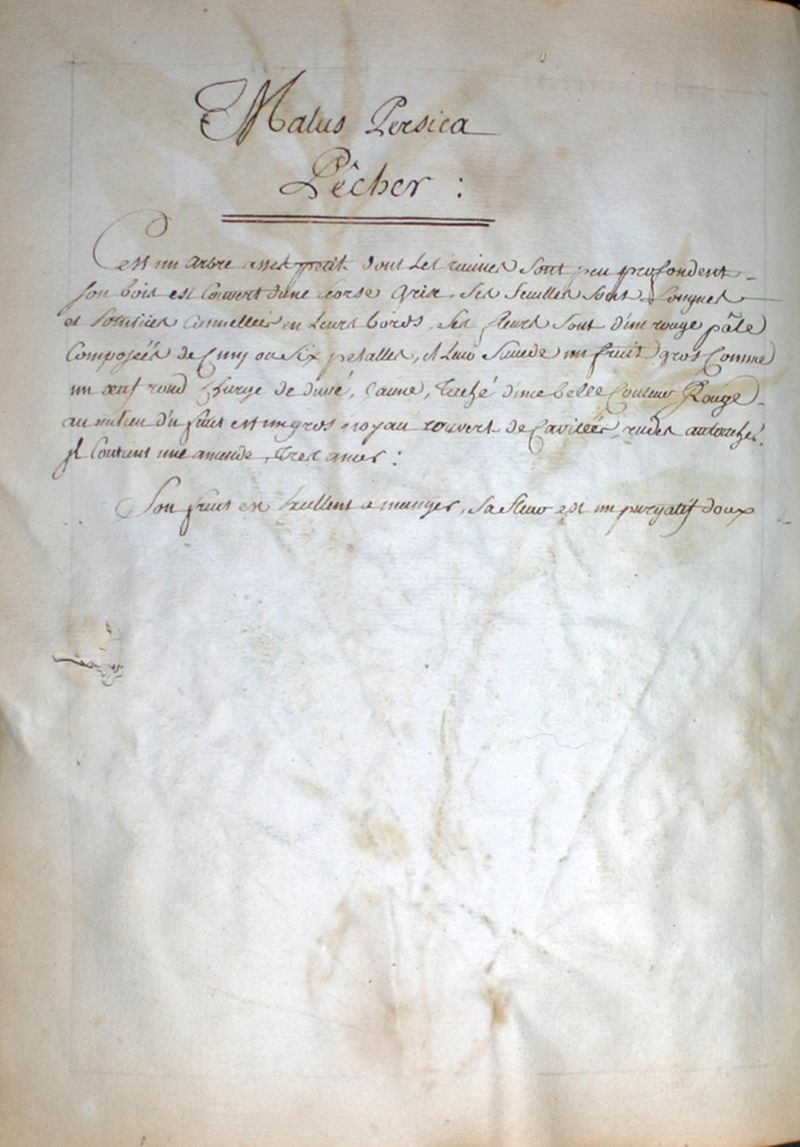 Malus Persica
Pêcher :
C'est un arbre assez petit dont les racines sont peu profondent
son bois est couvert d'une écorse grise, ses feuilles sont longues
et en leurs bords, ses fleurs sont d'un rouge pâle
composéés de cinq ou six petalles, et leur succede un fruit gros comme
un œuf rond chargé de duvé, jaune, taché d'une belle couleur Rouge
au milieu du fruit est un gros noyau couvert de cavitéés rudes au touché.
Il contient une amande, tres amer :
Son fruit est Exellent a manger, sa fleur est un purgatif doux